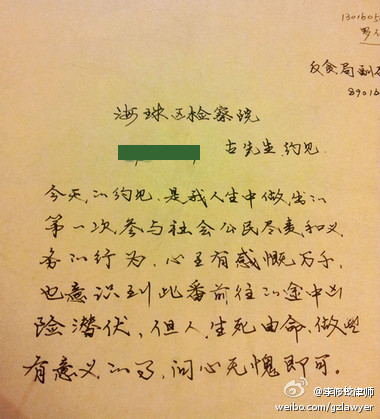 1301605
反贪局副
89016
海珠区检察院
古先生约见
今天,的约见,是我人生中做出的
第一次,参与社会公民尽责和义
务的行为,心至有感慨万千,
也意识到此番前往的途中凶
险潜伏,但人生死由命,做些
有意义的事,问心无愧即可。
律师
weibo.com/gzlawyer